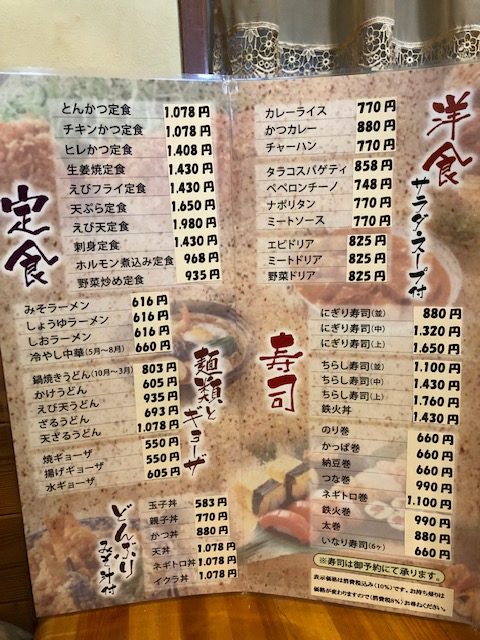 定食
とんかつ定食 1.078円
チキンかつ定食 1.078円
ヒレかつ定食 1.408円
生姜焼定食 1.430円
えびフライ定食 1.430円
天ぷら定食 1.650円
えび天定食 1.980円
刺身定食 1.430円
ホルモン煮込み定食 968円
野菜炒め定食 935円
麺類とギョーザ
みそラーメン 616円
しょうゆラーメン 616円
しおラーメン 616円
冷やし中華(5月〜8月) 660円
鍋焼きうどん(10月〜3月) 803円
かけうどん 605円
えび天うどん 935円
ざるうどん 693円
天ざるうどん 1.078円
焼ギョーザ 550円
揚げギョーザ 550円
水ギョーザ 605円
どんぶり
みそ汁付
玉子丼 583円
親子丼 770円
かつ丼 880円
天丼 1.078円
ネギトロ丼 1.078円
イクラ丼 1.078円
洋食
サラダ・スープ付
カレーライス 770円
かつカレー 880円
チャーハン 770円
タラコスパゲティ 858円
ペペロンチーノ 748円
ナポリタン 770円
ミートソース 770円
エビドリア 825円
ミートドリア 825円
野菜ドリア 825円
寿司
にぎり寿司(並) 880円
にぎり寿司(中) 1.320円
にぎり寿司(上) 1.650円
ちらし寿司(並) 1.100円
ちらし寿司(中) 1.430円
ちらし寿司(上) 1.760円
鉄火丼 1.430円
のり巻 660円
かっぱ巻 660円
納豆巻 660円
つな巻 660円
ネギトロ巻 1.100円
鉄火巻 990円
太巻 880円
いなり寿司(6ヶ) 660円
※寿司は御予約にて承ります。
表示価格は消費税込み(10%)です。お持ち帰りは
価格が変わりますので(消費税8%)お尋ねください。